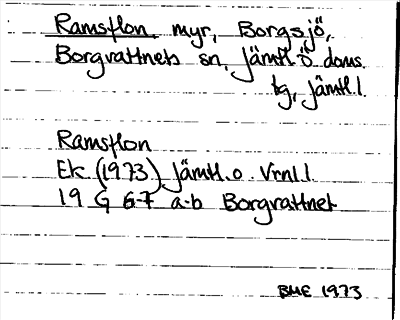 Ramsflon, myr, Borgsjö,
Borgvattnets sn, Jämtl. Ö. doms.
tg, Jämtl. l.
Ramsflon
Ek. (1973) Jämtl. o. Vrnl. l.
19 G 6-7 a-b Borgvattnet
BME 1973